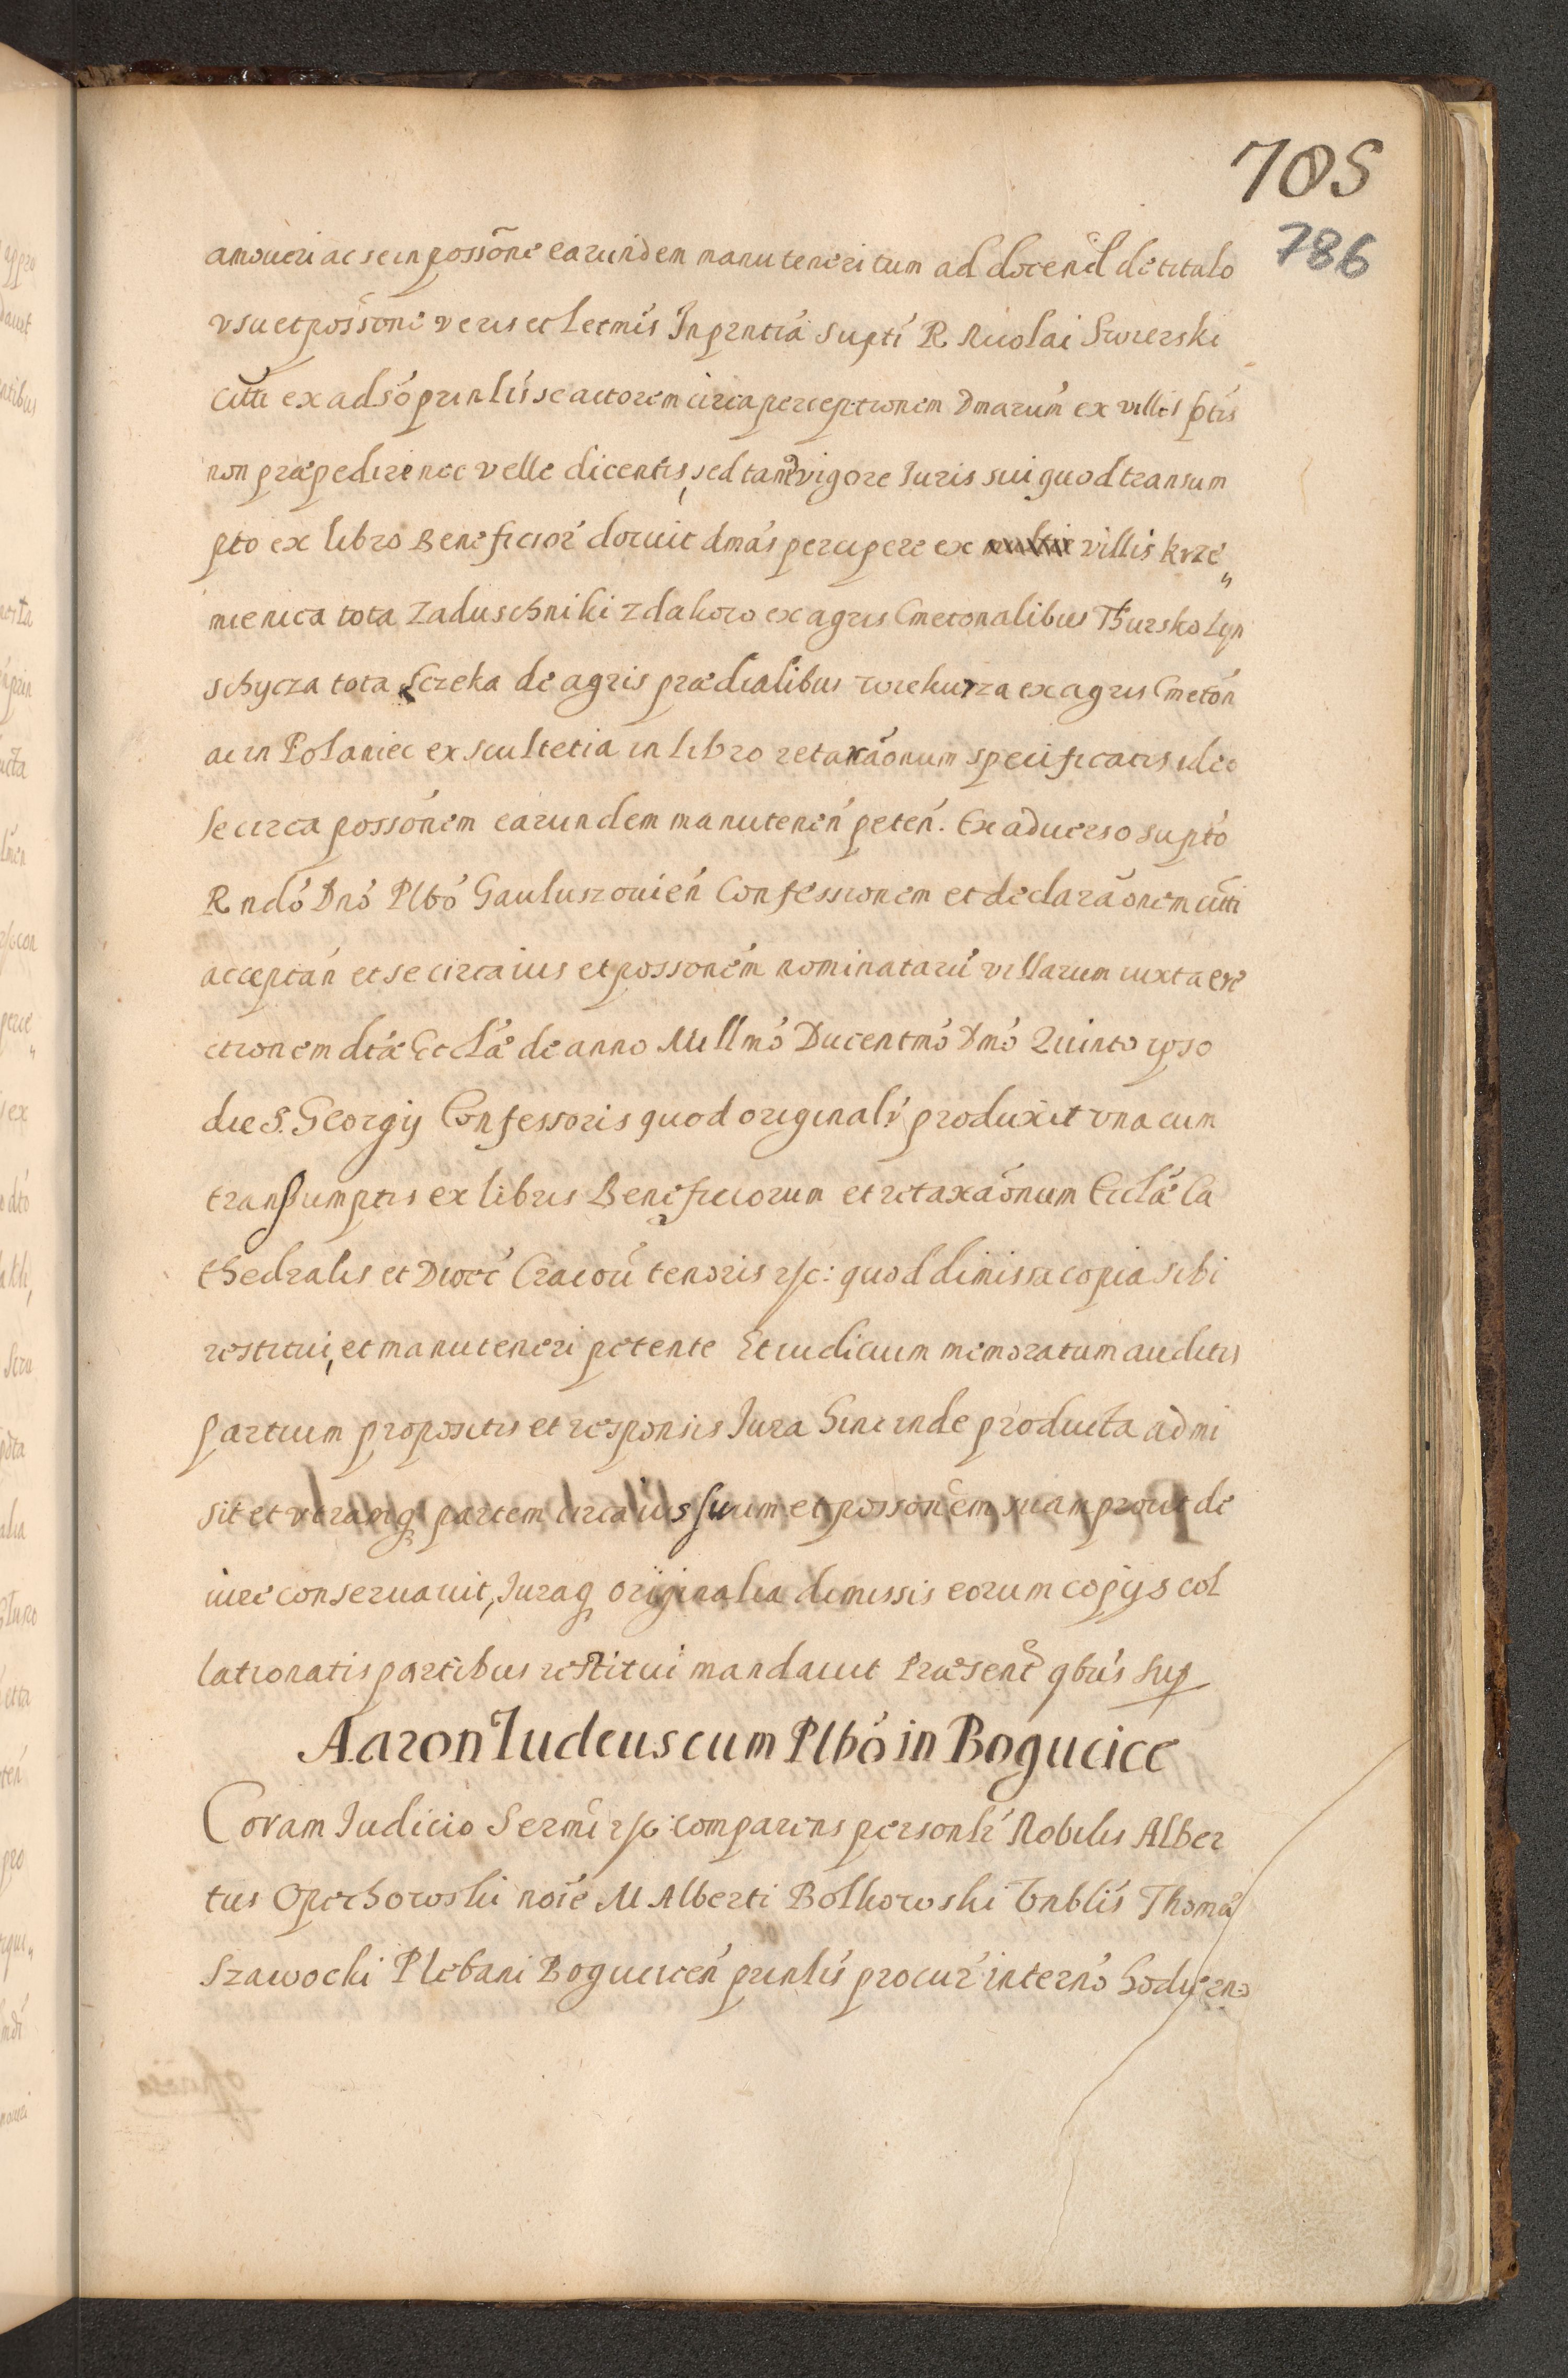 705
786
amoueri ac se in possõne earundem manuteneri tum ad docend de titulo
vsu et possone veris et Letmis In prntia supti R Nicolai Swierski
citti ex adso prnlis se actorem circa perceptionem Dmarum ex villis ptis
non præpedire nec velle dicentis, sed tam vigore Iuris sui quod transum
pto ex libro Beneficior docuit dmas percipere ex villis krze„
mienica tota Zaduschniki zdakow ex agris Cmetonalibus Thursko Lyn
schycza tota Sczeka de agris prædialibus ex agris Cmeton
ac in Polaniec ex scultetia in libro retaxaonum specificatis ideo
se circa possonem earundem manutenen peten. Ex aduerso supto
R ndo Dno Plbo Gauluszouien Confessionem et declaraonem citti
acceptan et se circa ius et possonem nominataru villarum iuxta ere
ctionem dtæ Ecclæ de anno Millmo Ducentmo Dmo Quinto ipso
die S. Georgij Confessoris quod originalr produxit vna cum
transumptis ex libris Beneficiorum et retaxaonum Ecclæ Ca
thedralis et Dioec Cracou tenoris rsc: quod dimissa copia sibi
restitui, et manuteneri petente Et iudicium memoratum auditis
partium propositis et responsis Iura hinc inde producta admi
sit et vtramq partem circa ius suum et possonem suam prout de
iure conseruauit, Iuraq originalia dimissis eorum copijs col
lationatis partibus restitui mandauit Præsent qbus sup
Aaron Iudeus cum Plbo in Bogucice
Coram Iudicio Sermi rsc comparens personlr Nobilis Alber
tus Opechowski noie M Alberti Bolkowski Thomæ
Szawocki Plebani Bogucicen prinlis procur in terno hodierno